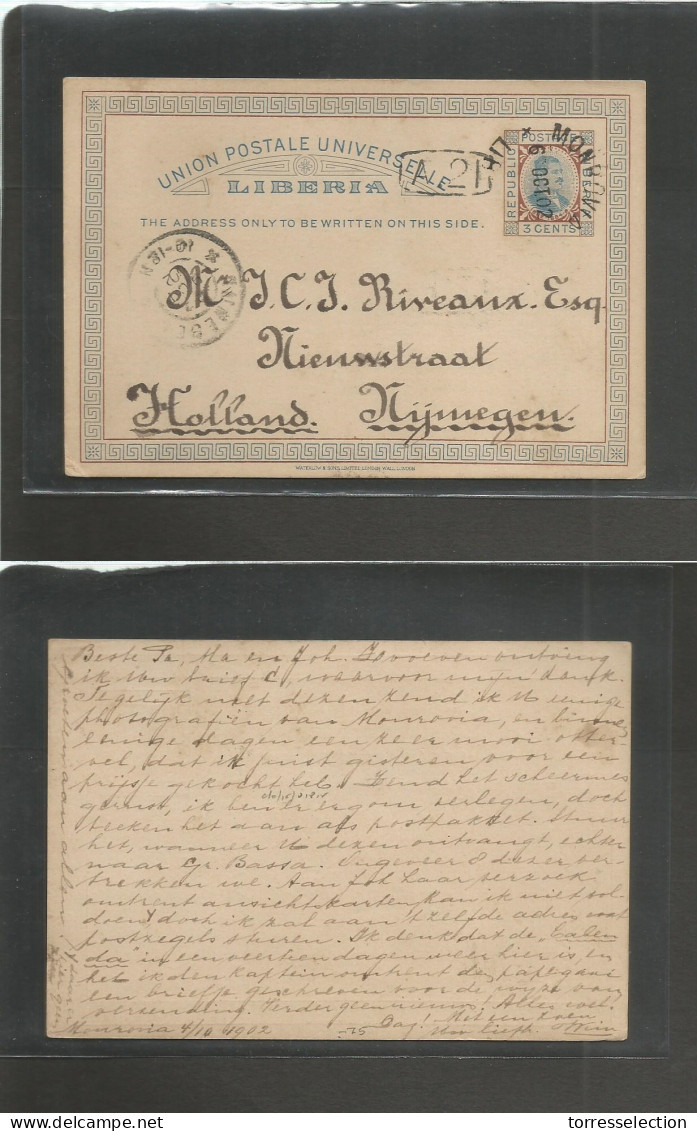 UNION POSTALE UNIVERSELLE
LIBERIA
A 21
MONROVIA
6 OCT 02
REPUBLIC
POSTAGE
LIBERIA
3 CENTS
THE ADDRESS ONLY TO BE WRITTEN ON THIS SIDE.
10-12 N
NIJMEGEN
Mr J. C. J. Riveaux. Esq.
Nieuwstraat
Holland. Nijmegen.
WATERLOW & SONS LIMITED, LONDON WALL, LONDON
Beste Pa, Ma en Joh. Zoo even ontving
ik Uw brief C, waarvoor mijn dank.
Tegelijk met dezen zend ik U eenige
photografiën van Monrovia, en binnen
eenige dagen een zeer mooi otter-
vel, dat ik juist gisteren voor een
prijsje gekocht heb. Zend het scheermes
gerust, ik ben er erg om verlegen, doch
teeken het aan als postpakket. Stuur
het, wanneer U dezen ontvangt, echter
naar Gr. Bassa. Ongeveer 8 dezer ver-
trekken we. Aan Joh haar verzoek
omtrent ansichtkaarten kan ik niet vol-
doen, doch ik zal aan 't zelfde adres wat
postzegels sturen. Ik denk dat de
da in een veertien dagen weer hier is, en
heb ik den kaptein omtrent de papegaai
een briefje geschreven voor de wijze van
verzending. Verder geen nieuws! Alles wel.
Dag! Met een zoen
Monrovia 4/10 1902
Uw liefh.
Groeten aan allen
torresselection